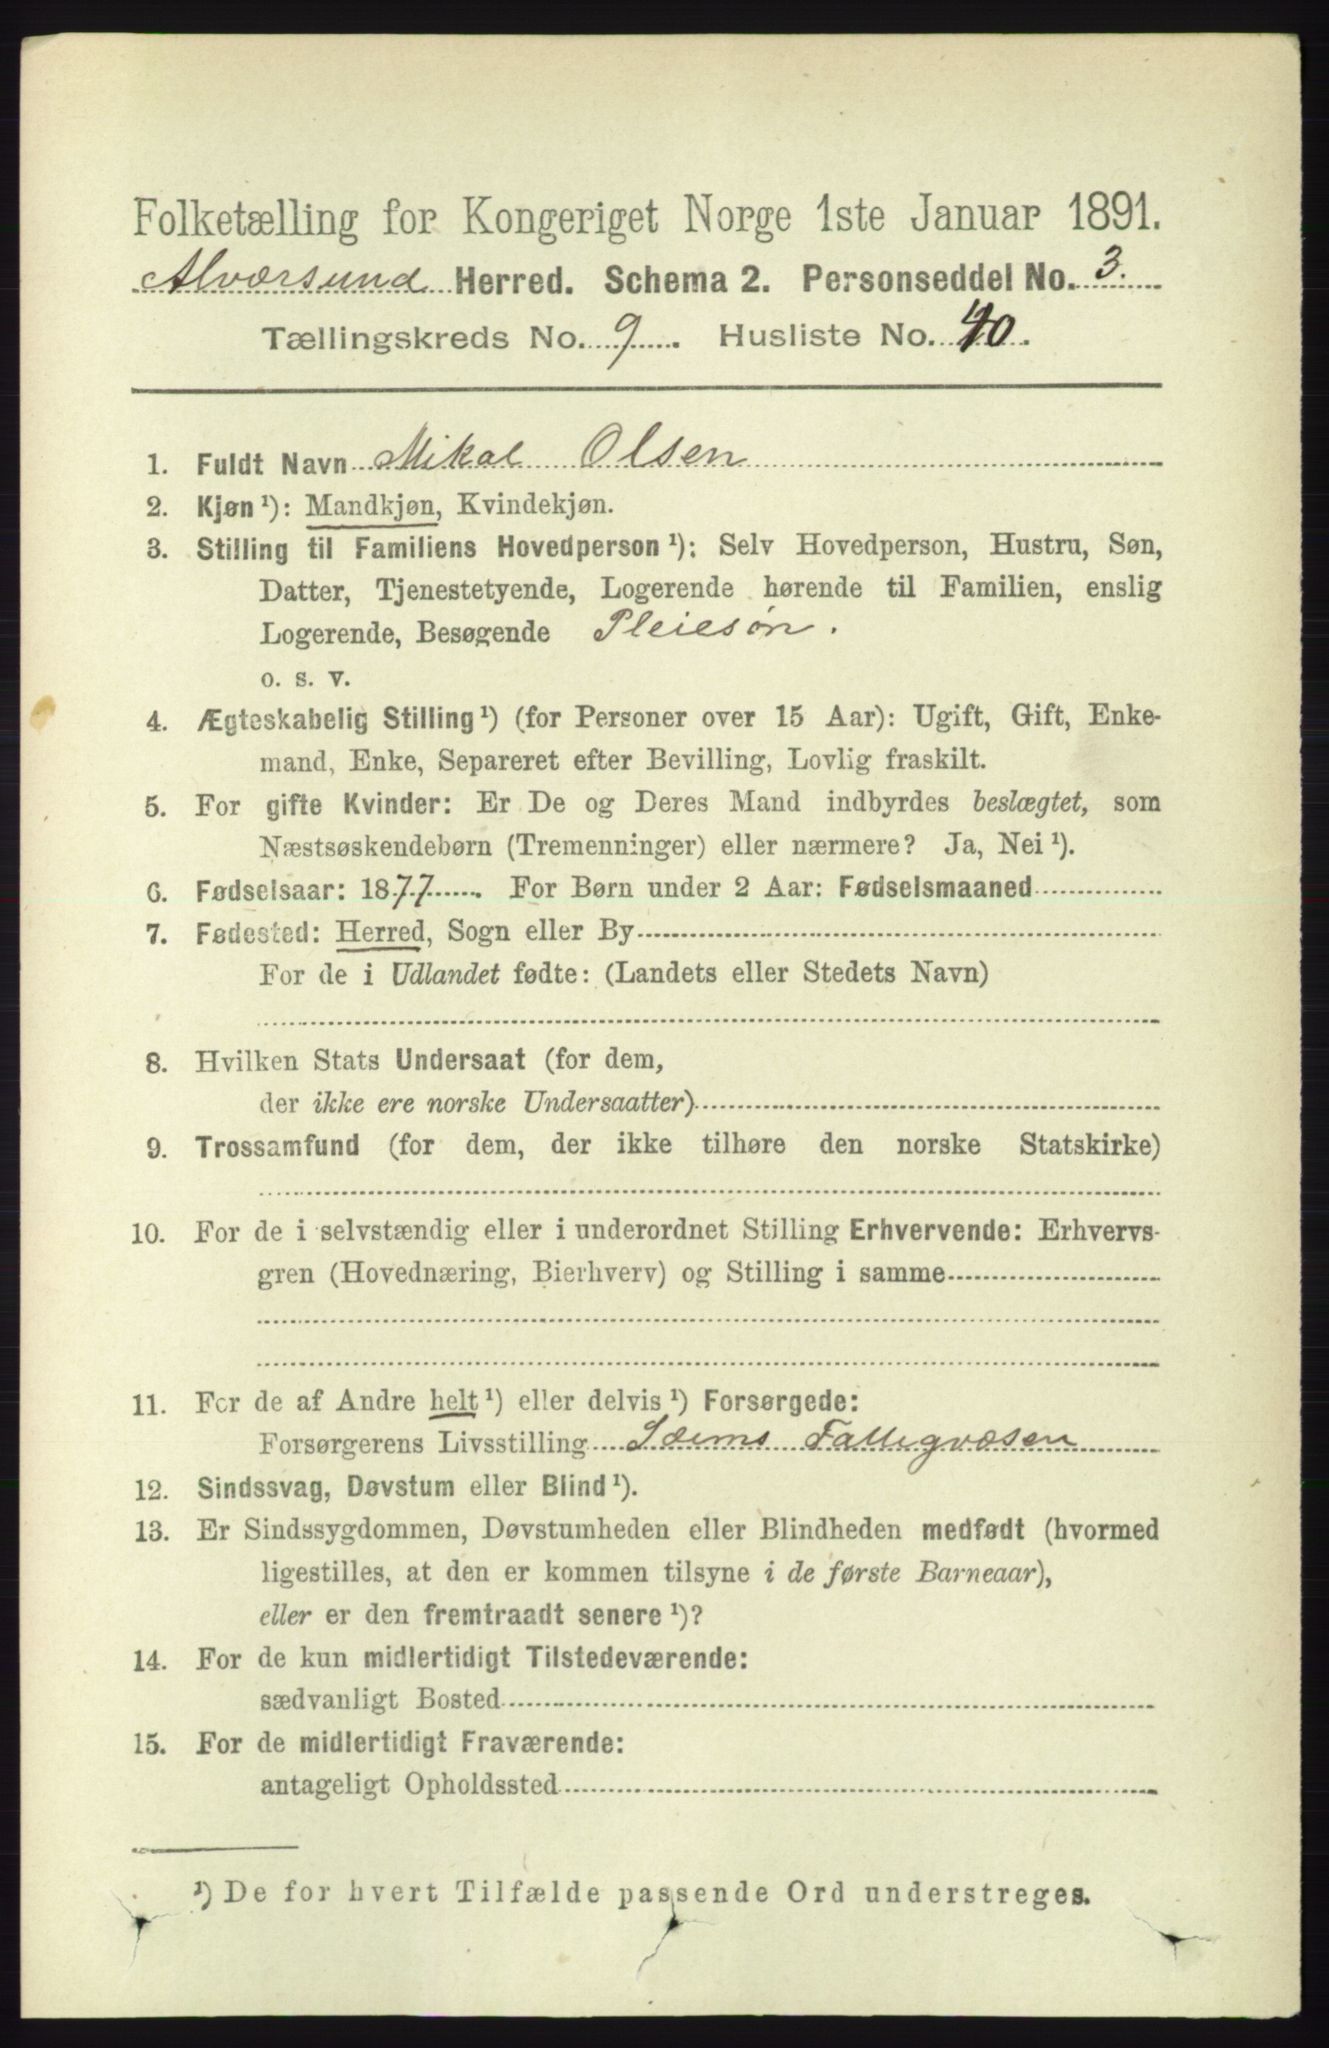 Folketælling for Kongeriget Norge 1ste Januar 1891.
Alværsund Herred. Schema 2. Personseddel No. 3.
Tællingskreds No. 9. Husliste No. 40.
1. Fuldt Navn Mikal Olsen
2. Kjøn ¹): Mandkjøn, Kvindekjøn.
3. Stilling til Familiens Hovedperson ¹): Selv Hovedperson, Hustru, Søn,
Datter, Tjenestetyende, Logerende hørende til Familien, enslig
Logerende, Besøgende Pleiesøn.
o. s. v.
4. Ægteskabelig Stilling ¹) (for Personer over 15 Aar): Ugift, Gift, Enke-
mand, Enke, Separeret efter Bevilling, Lovlig fraskilt.
5. For gifte Kvinder: Er De og Deres Mand indbyrdes beslægtet, som
Næstsøskendebørn (Tremenninger) eller nærmere? Ja, Nei ¹).
6. Fødselsaar: 1877. For Børn under 2 Aar: Fødselsmaaned
7. Fødested: Herred, Sogn eller By
For de i Udlandet fødte: (Landets eller Stedets Navn)
8. Hvilken Stats Undersaat (for dem,
der ikke ere norske Undersaatter)
9. Trossamfund (for dem, der ikke tilhøre den norske Statskirke)
10. For de i selvstændig eller i underordnet Stilling Erhvervende: Erhvervs-
gren (Hovednæring, Bierhverv) og Stilling i samme
11. For de af Andre helt ¹) eller delvis ¹) Forsørgede:
Forsørgerens Livsstilling Sæims Fattigvæsen
12. Sindssvag, Døvstum eller Blind ¹).
13. Er Sindssygdommen, Døvstumheden eller Blindheden medfødt (hvormed
ligestilles, at den er kommen tilsyne i de første Barneaar),
eller er den fremtraadt senere ¹)?
14. For de kun midlertidigt Tilstedeværende:
sædvanligt Bosted
15. For de midlertidigt Fraværende:
antageligt Opholdssted
¹) De for hvert Tilfælde passende Ord understreges.